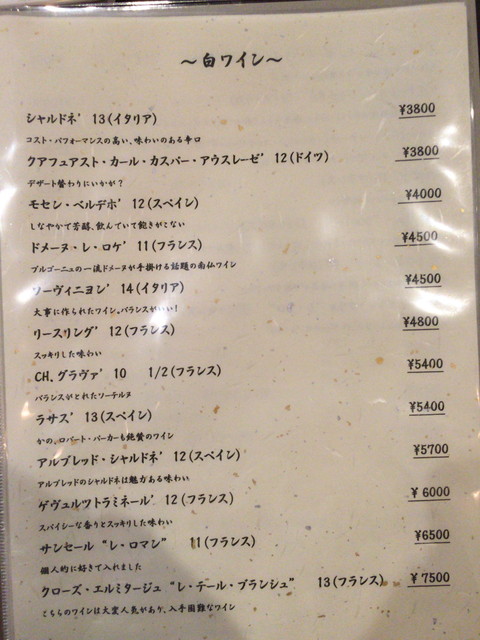 ～白ワイン～
シャルドネ’ 13(イタリア) ¥3800
コスト・パフォーマンスの高い、味わいのある辛口
クアフュアスト・カール・カスパー・アウスレーゼ’ 12(ドイツ) ¥3800
デザート替わりにいかが？
モセン・ベルデホ’ 12(スペイン) ¥4000
しなやかで芳醇、飲んでいて飽きがこない
ドメーヌ・レ・ロケ’ 11(フランス) ¥4500
ブルゴーニュの一流ドメーヌが手掛ける話題の南仏ワイン
ソーヴィニヨン’ 14(イタリア) ¥4500
大事に作られたワイン、バランスがいい！
リースリング’ 12(フランス) ¥4800
スッキリした味わい
CH.グラヴァ’ 10 1/2(フランス) ¥5400
バランスがとれたソーテルヌ
ラサス’ 13(スペイン) ¥5400
かの、ロバート・パーカーも絶賛のワイン
アルブレッド・シャルドネ’ 12(スペイン) ¥5700
アルブレッドのシャルドネは魅力ある味わい
ゲヴュルツトラミネール’ 12(フランス) ¥ 6000
スパイシーな香りとスッキリした味わい
サンセール “レ・ロマン” 11(フランス) ¥6500
個人的に好きで入れました
クローズ・エルミタージュ “レ・テール・ブランシュ” 13(フランス) ¥ 7500
こちらのワインは大変人気があり、入手困難なワイン